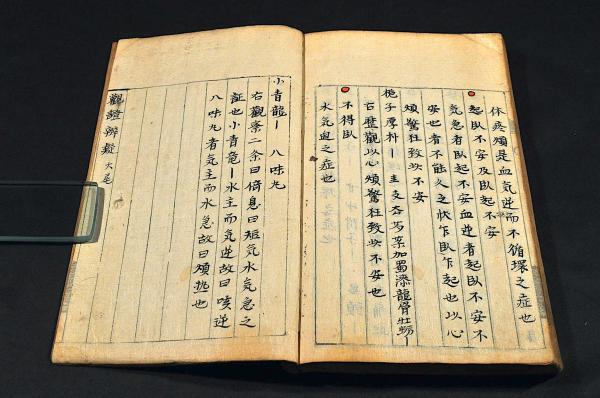 体疼煩是血気逆而不循環之症也
起臥不安及臥起不安
起臥不安血逆者起臥不安不
気急者臥起不安
安也者不能久之状乍臥乍起也以心
煩驚狂致必不安
梔子厚朴ー 圭支去芍薬加蜀漆龍骨牡蛎ー
右歴観以心煩驚狂致必不安也
不得臥
水気逆之症也
小青龍ー 八味丸
右観察二条曰倚息曰短気水気急之
証也小青竜ー水主而気逆故曰咳逆
八味丸者気主而水急故曰煩熱也
觀證辨疑 大尾